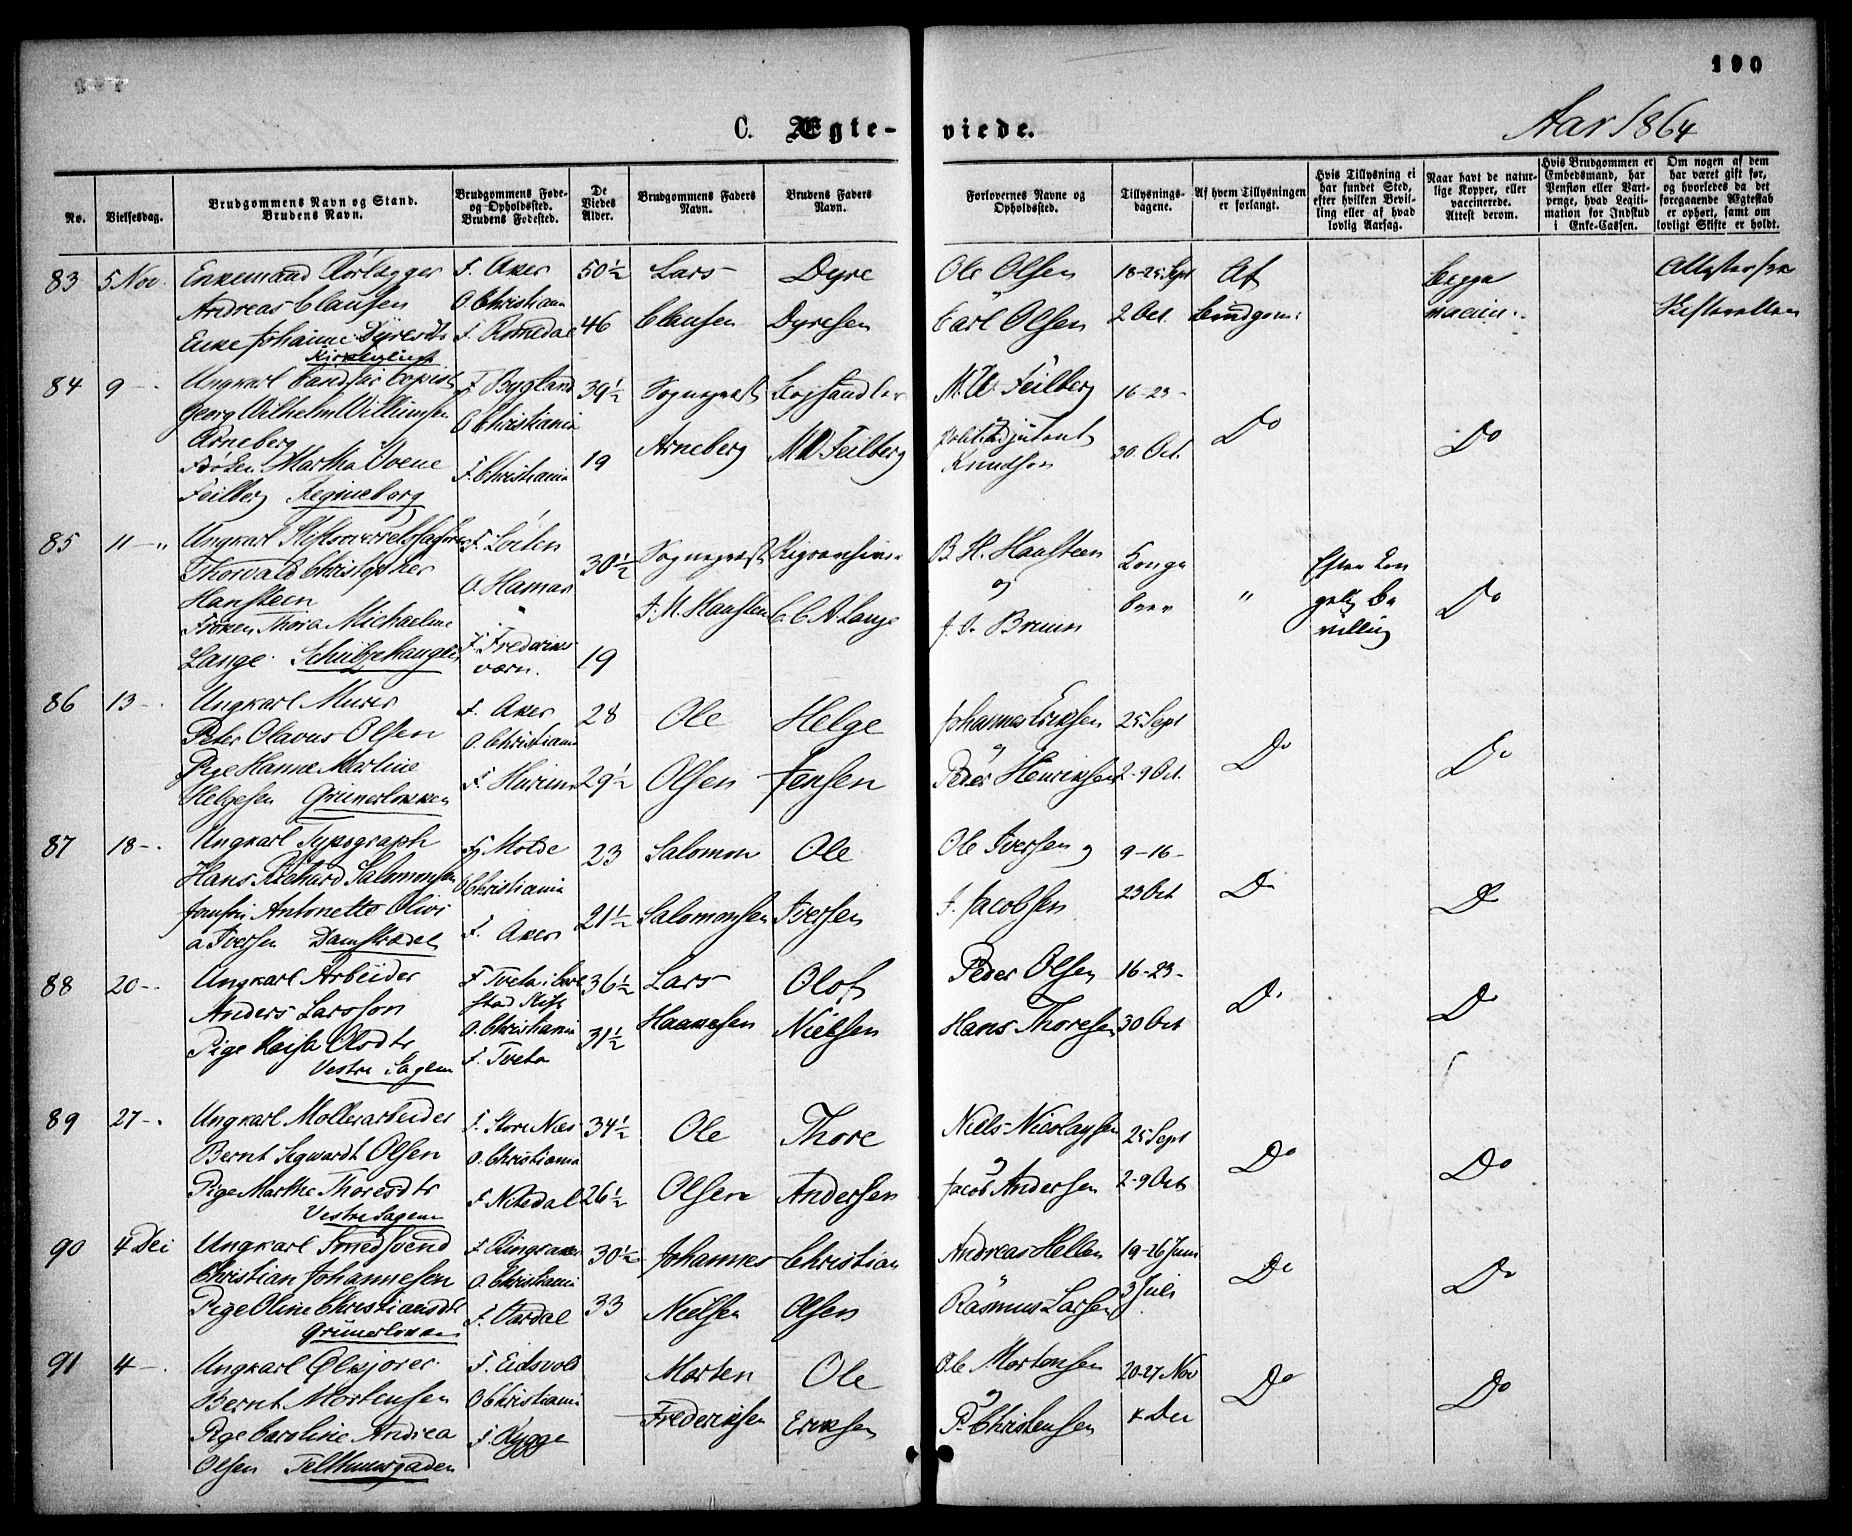 190
C. Ægte-viede.
Aar 1864
No.
Vielsesdag.
Brudgommens Navn og Stand.
Brudens Navn.
Brudgommens Føde-
og Opholdssted.
Brudens Fødested.
De
Viedes
Alder.
Brudgommens Faders
Navn.
Brudens Faders
Navn.
Forlovernes Navne og
Opholdssted.
Tillysnings-
dagene.
Af hvem Tillysningen
er forlangt.
Hvis Tillysning ei
har fundet Sted,
efter hvilken Bevil-
ling eller af hvad
lovlig Aarsag.
Naar havt de natur-
lige Kopper, eller
vaccinerede.
Attest derom.
Hvis Brudgommen er
Embedsmand, har
Pension eller Vart-
penge, hvad Legiti-
mation for Indskud
i Enke-Cassen.
Om nogen af dem
har været gift før,
og hvorledes da det
foregaaende Ægteskab
er ophørt, samt om
lovligt Skifte er holdt.
83 5 Nov. Enkemand Rørlægger F. Aker 50½ Lars Dyre Ole Olsen 18-25 Sept Af begge
Andreas Clausen O. Christiania Clausen Dyresen Carl Olsen 2 Oct. Brudgom.
Enke Johanne Dyresdtr F. Romedal 46
84 9 -. Ungkarl F. Bygland 39½ Sogneprest M. W. Feilberg 16-23-
Georg Wilhelm Willumsen O Christiania Arneberg M W Feilberg 30 Oct. Do Do
Arneberg Knudsen
Frøken Martha Ovene F. Christiania 19
Feilberg Regineborg
85 11 -. Ungkarl F. Löiten 30½ Sogneprest B. H. Hansteen Konge Efter Kon
Thorvald Christopher O. Hamar og brev " gelig Be Do
Hansteen " C. C. A Lange villing
Frøken Thora Michaeline F. Frederiks J. J. Bruun
Lange. værn. 19
86 13 -. Ungkarl Murer F. Aker 28 Ole Helge Johannes Eriksen 25 Sept
Peter Olavus Olsen O. Christiania Do Do
Pige Hanna Martine F. Hurum 29½ Olsen Jensen Peder Henriksen 2-9 Oct.
Helgesen Grünerløkken
87 18 -. Ungkarl Typograph F. Molde 23 Salomon Ole Ole Iversen og 9-16-
Hans Richard Salomonsen O Christiania 23 Oct Do Do
Jomfru Antonette Olivi F. Aker 21½ Salomonsen Iversen J. Jacobsen
a Iversen Damstrædet
88 20 -. Ungkarl Arbeider F. Tveta i Carl 36½ Lars Olof Peder Olsen 16-23-
Anders Larsson stad Stift Do Do
O. Christiania Haavesen Nielsen Hans Thoresen 30 Oct
Pige Kaisa Olsdtr F. Tveta 31½
Vestre Sagene
89 27 -. Ungkarl Møllerarbeider F. Store Næs 34½ Ole Thore Niels Nicolaysen 25 Sept
Bernt Sigwardt Olsen O. Christiania Do Do
Pige Marthe Thoresdtr F. Nitedal 26½ Olsen Andersen Jacob Andersen 2-9 Oct
Vestre Sagene
90 4 Dec Ungkarl Smedsvend F. Ringsaker 30½ Johannes Christian Andreas Hellen 19-26 Juni
Christian Johannesen O. Christiania Do Do
Pige Oline Christiansdtr F. Vardal 33 Nielsen Olsen Rasmus Larsen 3 Juli
Grünerløkken
91 4 -. Ungkarl Ølkjører F. Eidsvold Morten Ole Ole Mortensen 20-27 Nov
Bernt Mortensen O Christiania Do Do
Pige Caroline Andrea F. Rygge Frederiksen Eriksen P. Christensen 4 Dec
Olsen Telthuusgaden